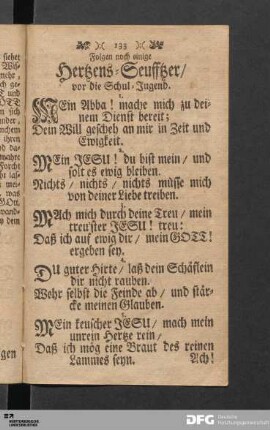 )( 133 )(
Folgen noch einige
Hertzens-Seufftzer/
vor die Schul-Jugend.
1.
MEin Abba! mache mich zu dei-
nem Dienst bereit;
Dein Will gescheh an mir in Zeit und
Ewigkeit.
2.
MEin JESU! du bist mein/ und
solt es ewig bleiben.
Nichts/ nichts/ nichts müsse mich
von deiner Liebe treiben.
3.
MAch mich durch deine Treu/ mein
treuster JESU! treu:
Daß ich auf ewig dir/ mein GOTT!
ergeben sey.
4.
DU guter Hirte/ laß dein Schäflein
dir nicht rauben.
Wehr selbst die Feinde ab/ und stär-
cke meinen Glauben.
5.
MEin keuscher JESU/ mach mein
unrein Hertze rein/
Daß ich mög eine Braut des reinen
Lammes seyn. Ach!
gen
DFG Deutsche
Forschungsgemeinschaft